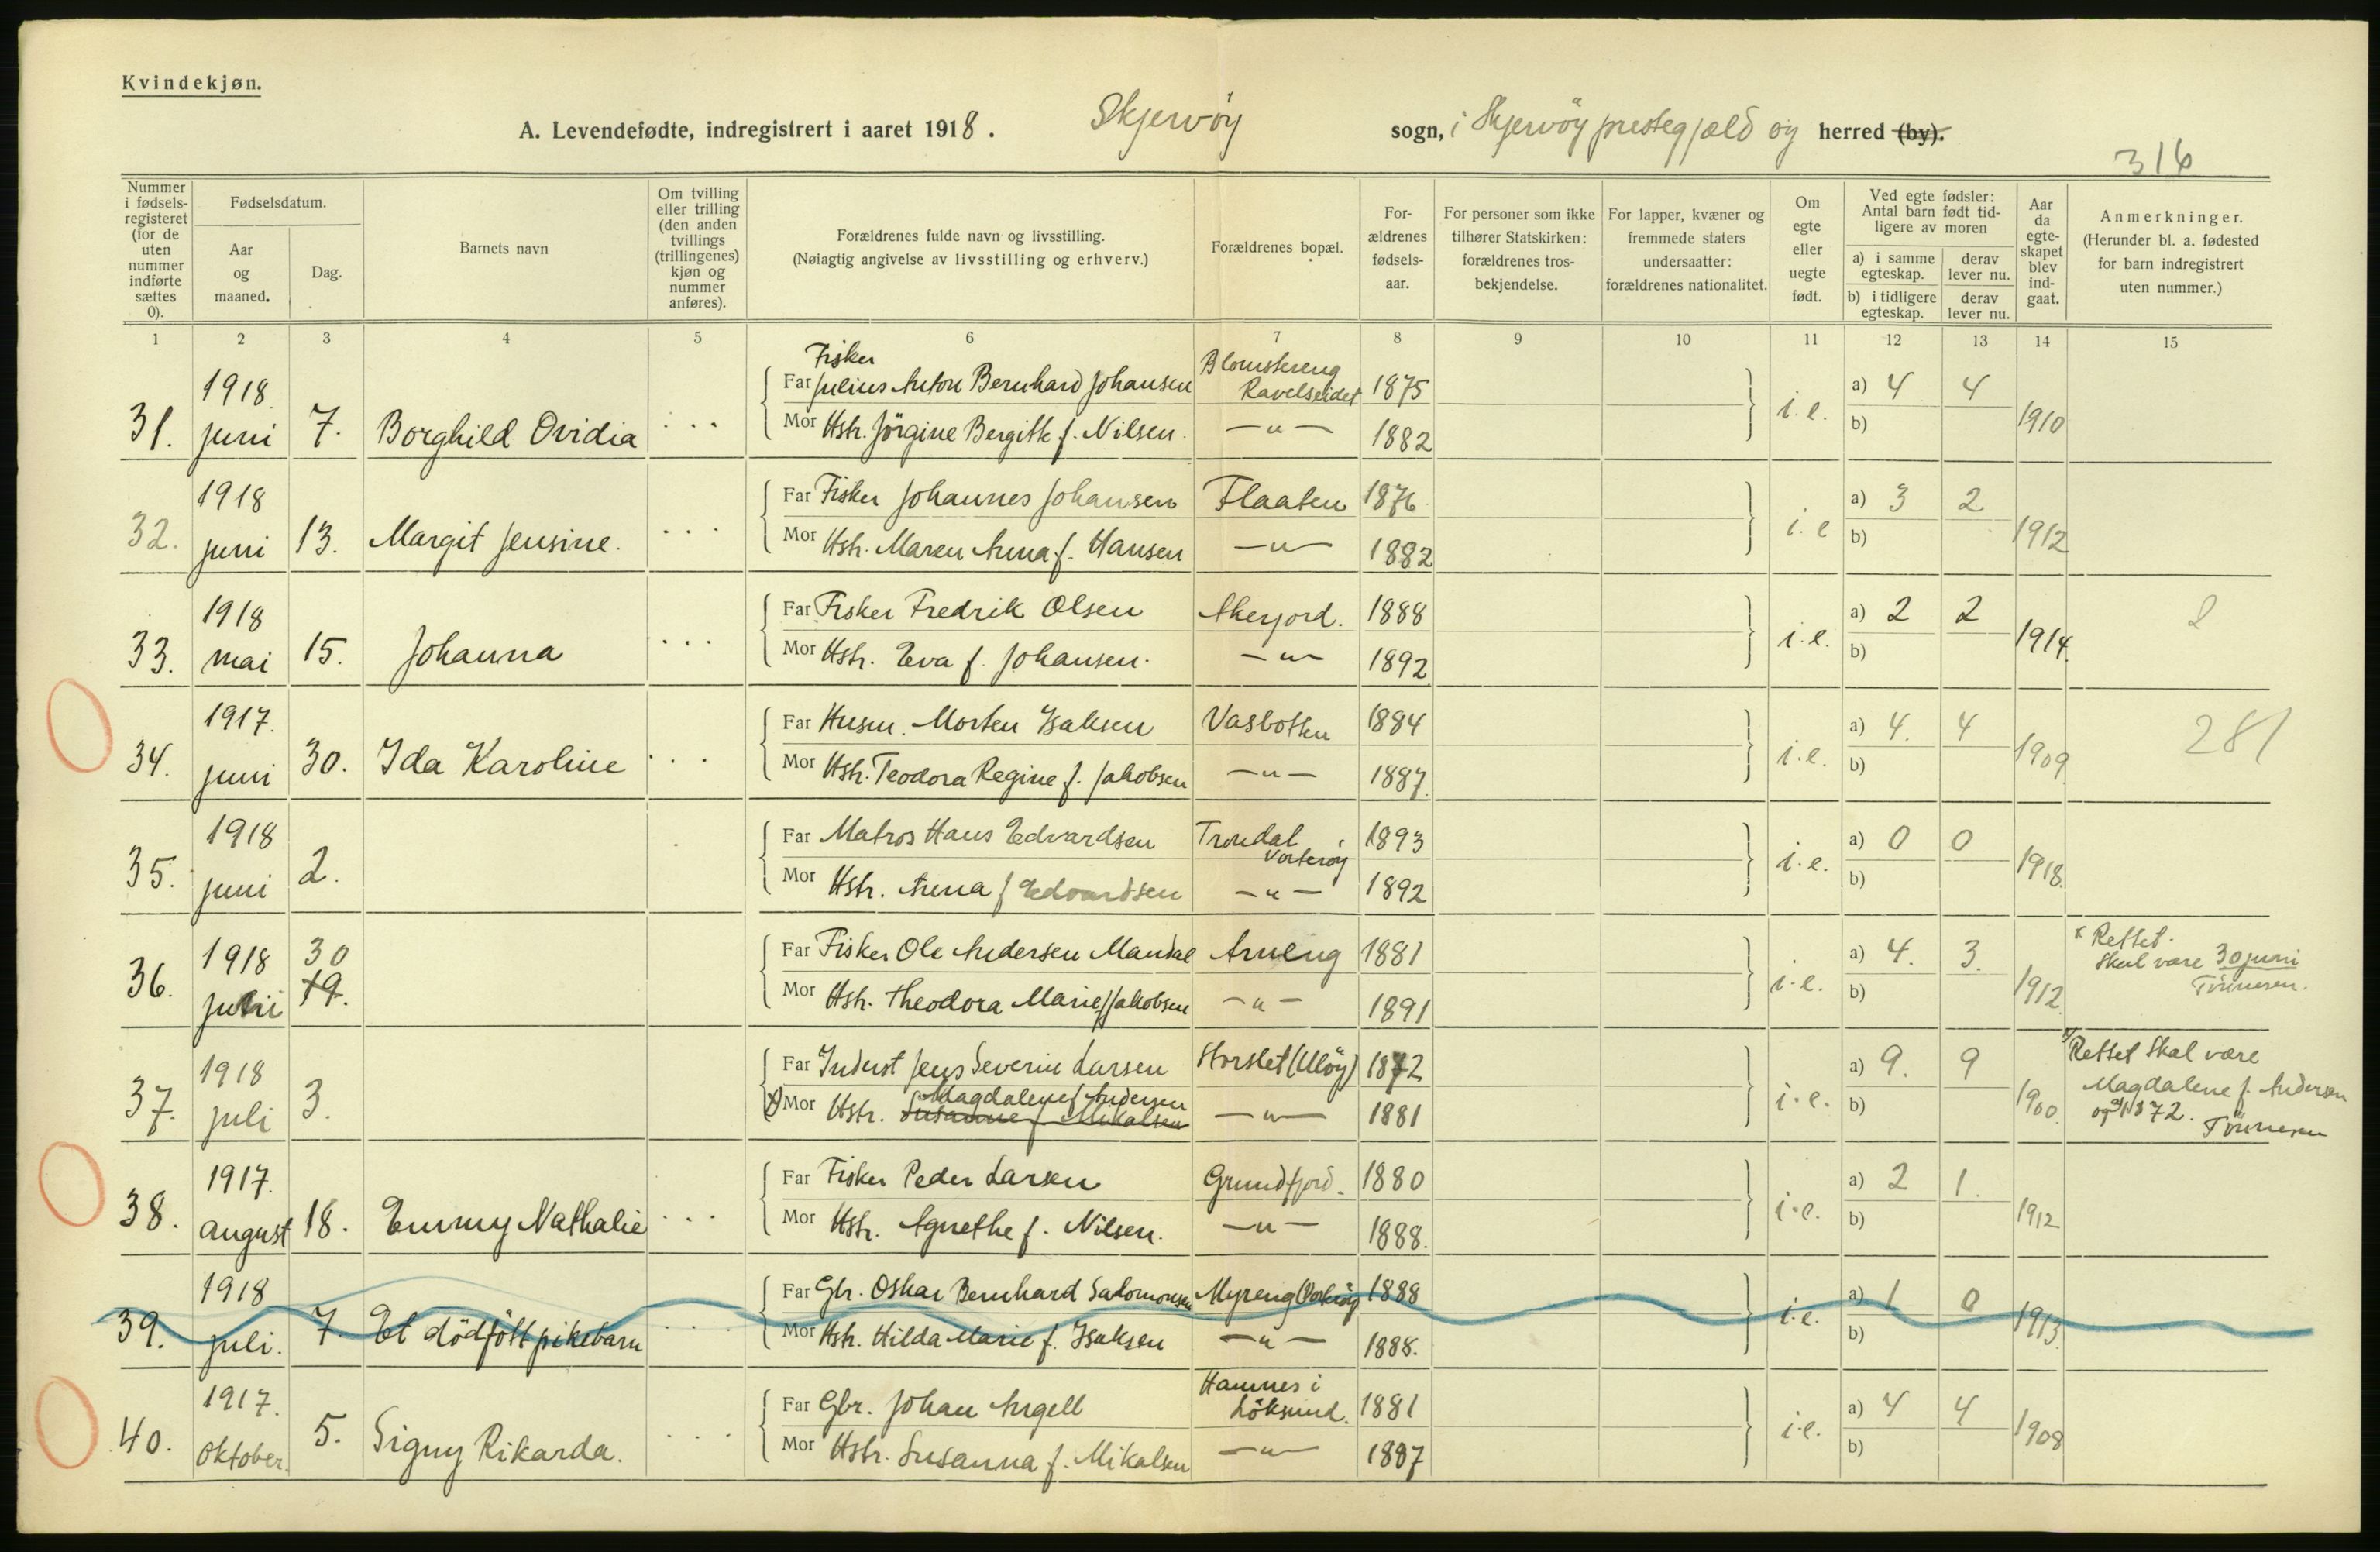 Kvindekjøn.
A. Levendefødte, indregistrert i aaret 1918. Skjervöy sogn, i Skjervöy prestegjæld og herred (by).
316
Nummer i fødsels-registeret (for de uten nummer indførte sættes 0).
Fødselsdatum.
Aar og maaned.
Dag.
Barnets navn
Om tvilling eller trilling (den anden tvillings (trillingenes) kjøn og nummer anføres).
Forældrenes fulde navn og livsstilling.
(Nøiagtig angivelse av livsstilling og erhverv.)
Forældrenes bopæl.
For-ældrenes fødsels-aar.
For personer som ikke tilhører Statskirken: forældrenes tros-bekjendelse.
For lapper, kvæner og fremmede staters undersaatter: forældrenes nationalitet.
Om egte eller uegte født.
Ved egte fødsler: Antal barn født tid-ligere av moren
a) i samme egteskap.
derav lever nu.
b) i tidligere egteskap.
derav lever nu.
Aar da egte-skapet blev ind-gaat.
Anmerkninger.
(Herunder bl. a. fødested for barn indregistrert uten nummer.)
1 2 3 4 5 6 7 8 9 10 11 12 13 14 15
31. 1918. juni 7. Borghild Ovidia . . .
Far Fisker Julius Anton Bernhard Johansen Blomstereng Ravelseidet 1875
Mor Hstr. Jörgine Bergitte f. Nilsen. —„— 1882
i.e. a) 4 4 b) 1910
32. 1918 juni 13. Margit Jensine. . . .
Far Fisker Johannes Johansen Flaaten 1876
Mor Hstr. Maren Anna f. Hansen —„— 1882
i.e a) 3 2 b) 1912
33. 1918 mai 15. Johanna . . .
Far Fisker Fredrik Olsen Akerjord. 1888
Mor Hstr. Eva f. Johansen. —„— 1892
i.e. a) 2 2 b) 1914.
34. 1917. juni 30. Ida Karoline . . .
Far Husm. Morten Isaksen Vasbotten 1884
Mor Hstr. Teodora Regine f. Jakobsen —„— 1887.
i.e. a) 4. 4 b) 1909
281
35. 1918 juni 2.
Far Matros Hans Edvardsen Trondal Vorteröy 1893
Mor Hstr. Anna f Edvardsen —„— 1892
i.e. a) 0 0 b) 1918.
36. 1918 30 19.
Far Fisker Ole Andersen Mandal Arneng 1881
Mor Hstr. Theodora Marie f Jakobsen —„— 1891
i.e. a) 4. 3. b) 1912.
x Rettet.
Skal være 30 juni
Tönnesen.
37. 1918 juli 3.
Far Inderst Jens Severin Larsen Storslet (Ulöy) 1872
x) Mor Hstr. Magdalene f Andersen Susanne f Mikalsen —„— 1881
i.e. a) 9. 9 b) 1900.
x) Rettet Skal være
Magdalene f. Andersen
1872. Tönnesen
38. 1917. august 18. Emmy Nathalie . . .
Far Fisker Peder Larsen Grundfjord. 1880
Mor Hstr. Agnethe f. Nilsen. —„— 1888.
i.e. a) 2 1. b) 1912
39. 1918 juli. 7. Et dödfött pikebarn . . .
Far Gbr. Oskar Bernhard Salomonsen Myreng (Vorteröy 1888
Mor Hstr. Hilda Marie f. Isaksen —„— 1888.
i.e. a) 1 0 b) 1913.
40. 1917. Oktober. 5. Signy Rikarda. . . .
Far Gbr. Johan Angell Hamnes i Löksund. 1881
Mor Hstr. Susanna f. Mikalsen —„— 1887
i.e. a) 4 4 b) 1908